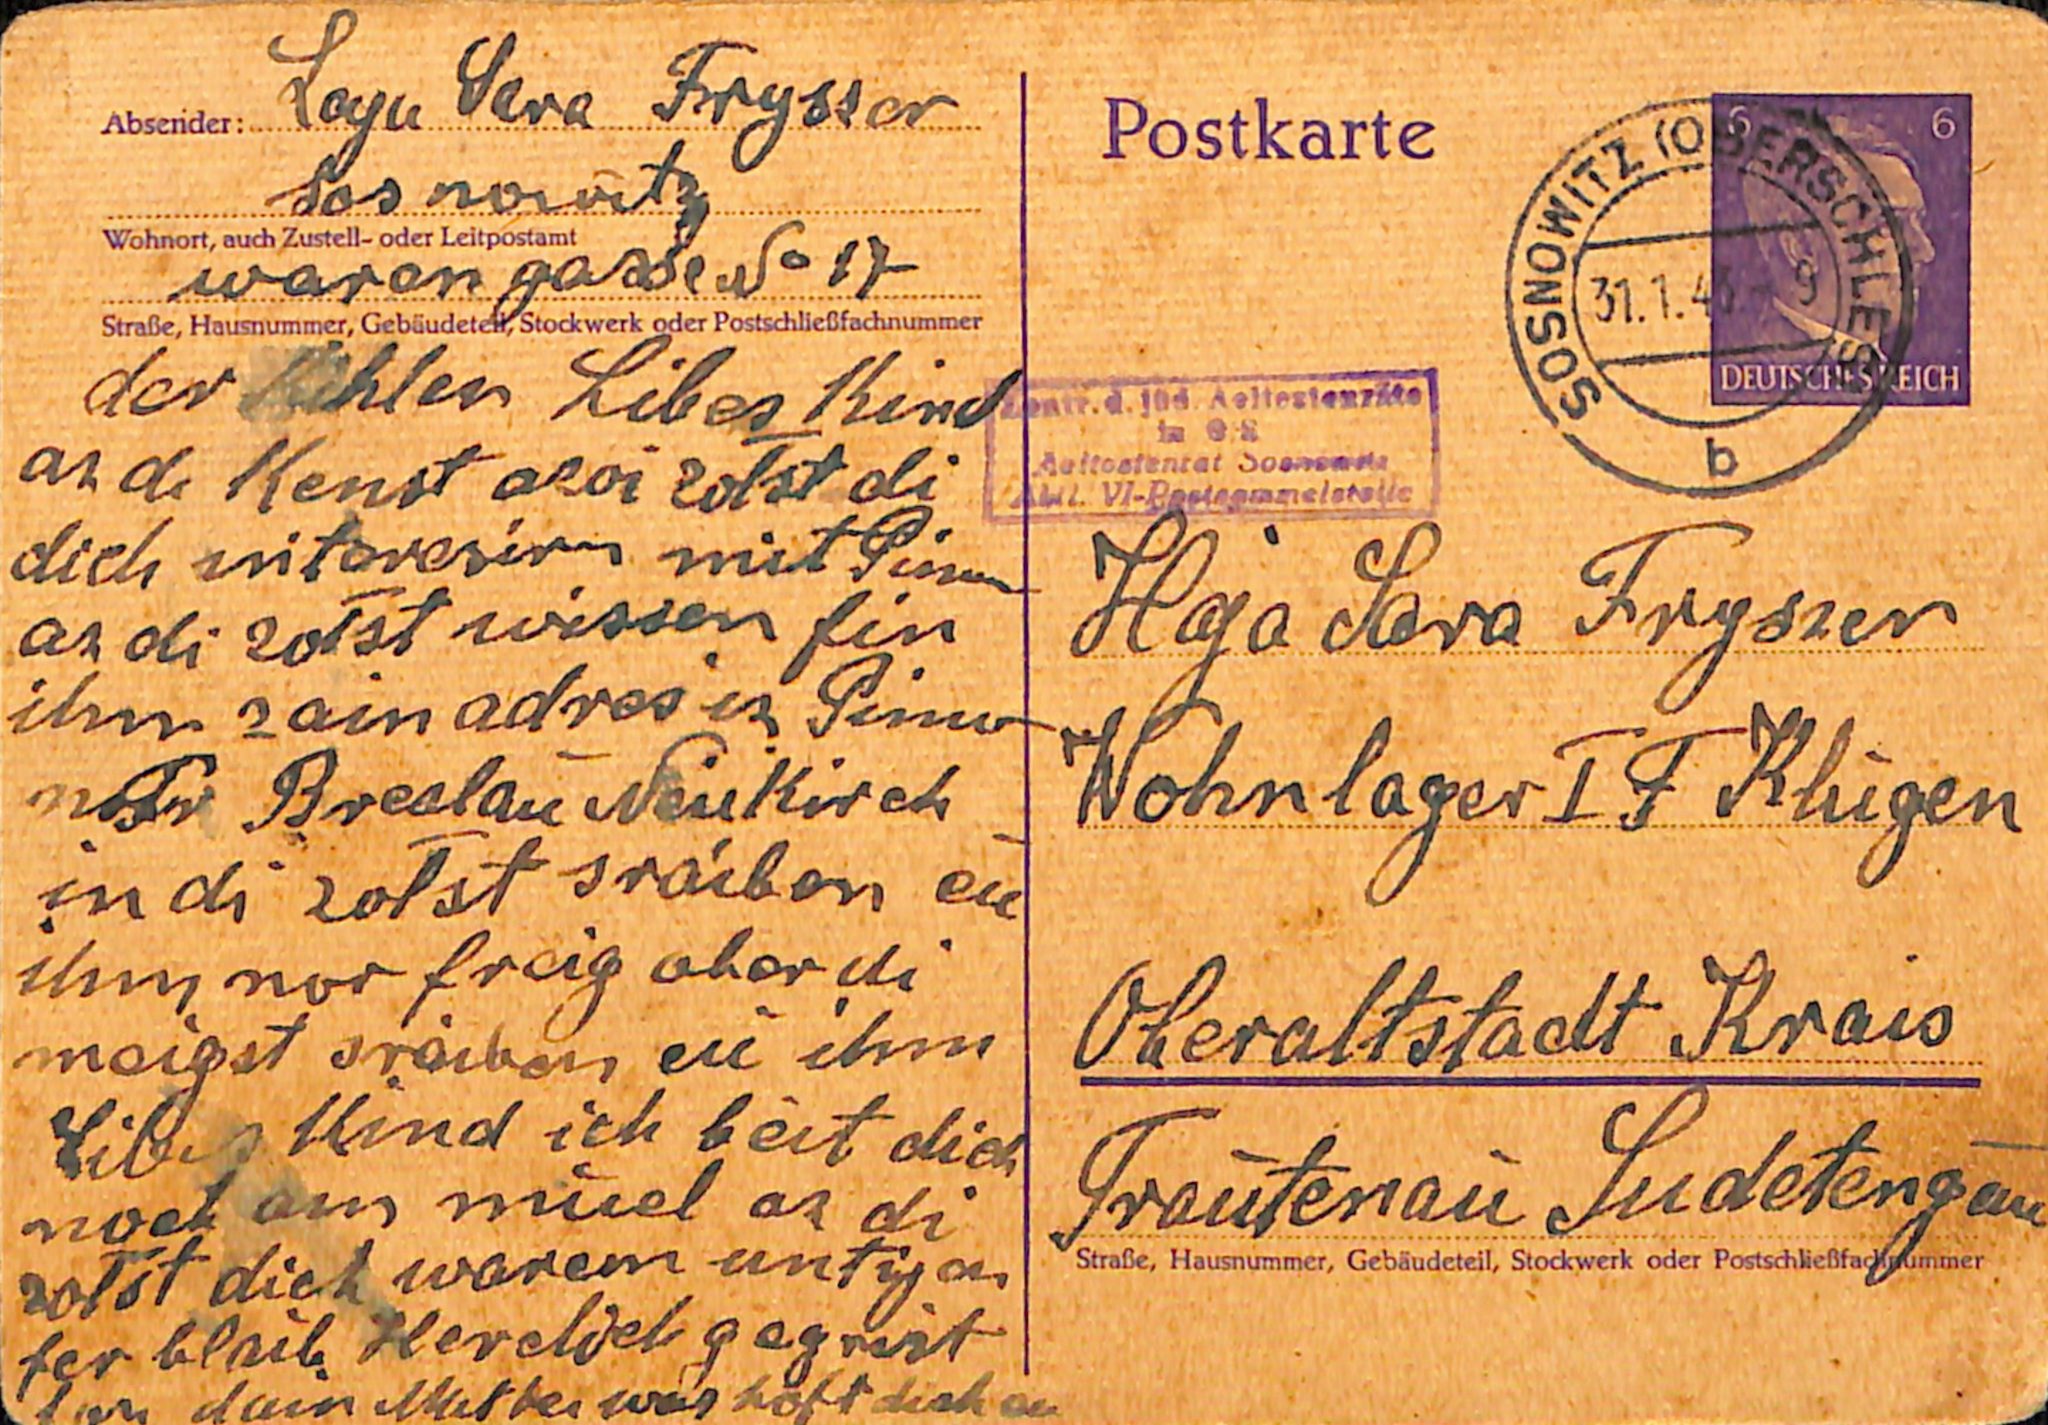 Absender: Laya Sara Frysser
Sosnowitz
Wohnort, auch Zustell- oder Leitpostamt
waren gasse No 17
Straße, Hausnummer, Gebäudeteil, Stockwerk oder Postschließfachnummer
der Libes Kind
az di Kenst azoi zolst di
dich intaresirn mit
az di zolst wissen fin
ihm zain adres iz
Breslau Neukirch
in di zolst sraiben
ihm nor freig aber di
meigst sraiben eu ihm
Libes Kind ich beit dich
noch am muel az di
zolst dich warem untijan
fer blaib Herclich gegrist
dain Mutter was hoft dich
Postkarte
6 6
DEUTSCHES REICH
SOSNOWITZ (OBERSCHLES)
31.1.43. - 9
b
Zentr. d. jüd. Aeltestenräte
in OS
Aeltestenrat Sosnowitz
Abtl. VI-Postsammelstelle
Haja Sara Fryszer
Wohnlager I F Klügen
Oberaltstadt Krais
Trautenau Sudetengau
Straße, Hausnummer, Gebäudeteil, Stockwerk oder Postschließfachnummer